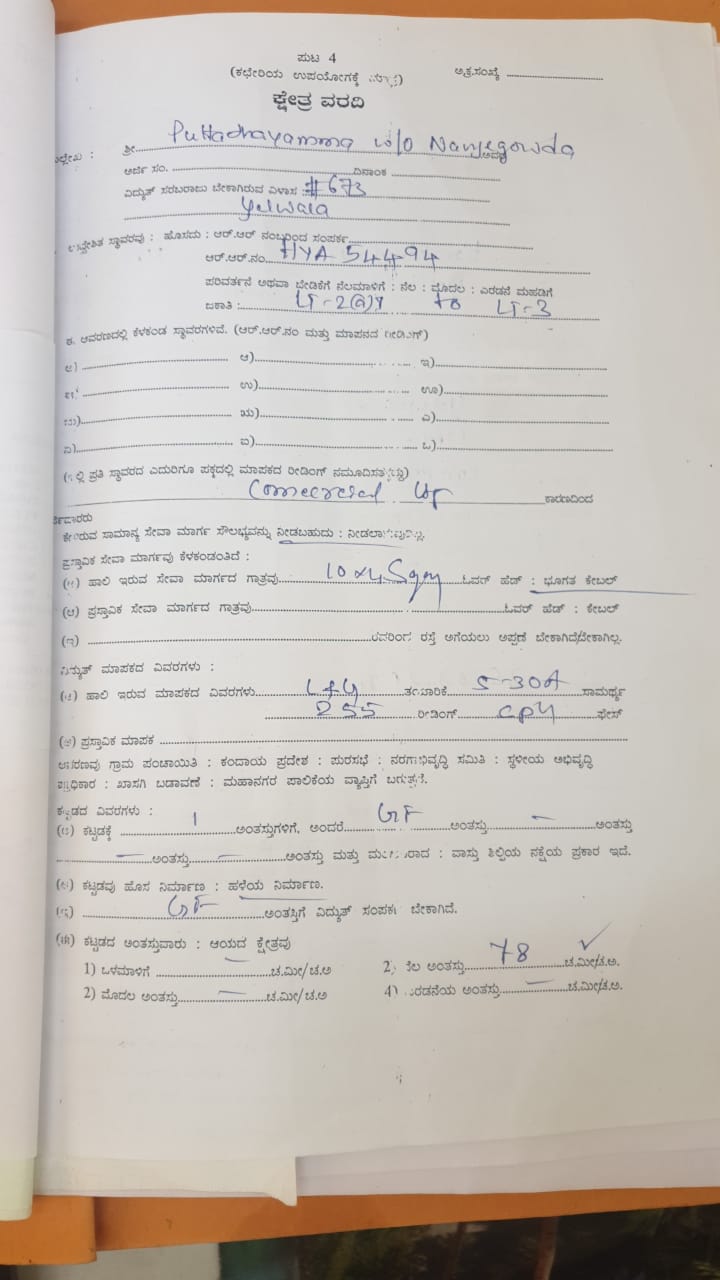 ಪುಟ 4
(ಕಛೇರಿಯ ಉಪಯೋಗಕ್ಕೆ
ಅ.ಕ್ರ.ಸಂಖ್ಯೆ
ಕ್ಷೇತ್ರ ವರದಿ
ಶ್ರೀ Puttachayamma w/o Nanjegowda
ಅರ್ಜಿ ಸಂ. ದಿನಾಂಕ
ವಿದ್ಯುತ್ ಸರಬರಾಜು ಬೇಕಾಗಿರುವ ವಿಳಾಸ : #673
Yelwala
ಸ್ಥಾವರವು : ಹೊಸದು : ಆರ್.ಆರ್ ನಂಬರಿಂದ ಸಂಪರ್ಕ
ಆರ್.ಆರ್.ನಂ. HYA 54494
ಪರಿವರ್ತನೆ ಅಥವಾ ಬೇಡಿಕೆಗೆ ನೆಲಮಾಳಿಗೆ : ನೆಲ : ಮೊದಲ : ಎರಡನೆ ಮಹಡಿಗೆ
ಜಕಾತಿ : LT-2(a) to LT-3
ಆವರಣದಲ್ಲಿ ಕೆಳಕಂಡ ಸ್ಥಾವರಗಳಿವೆ. (ಆರ್.ಆರ್.ನಂ ಮತ್ತು ಮಾಪನದ ರೀಡಿಂಗ್)
ಅ) ಆ) ಇ)
ಉ) ಊ)
ಋ) ಎ)
ಐ) ಒ)
ಪ್ರತಿ ಸ್ಥಾವರದ ಎದುರಿಗೂ ಪಕ್ಕದಲ್ಲಿ ಮಾಪಕದ ರೀಡಿಂಗ್
Comecrcial ಕಾರಣದಿಂದ
ಸಾಮಾನ್ಯ ಸೇವಾ ಮಾರ್ಗ ಸೌಲಭ್ಯವನ್ನು ನೀಡಬಹುದು :
ಪ್ರಸ್ತಾವಿಕ ಸೇವಾ ಮಾರ್ಗವು ಕೆಳಕಂಡಂತಿದೆ :
(ಅ) ಹಾಲಿ ಇರುವ ಸೇವಾ ಮಾರ್ಗದ ಗಾತ್ರವು 10x4 Sqm ಓವರ್ ಹೆಡ್ : ಭೂಗತ ಕೇಬಲ್
(ಆ) ಪ್ರಸ್ತಾವಿಕ ಸೇವಾ ಮಾರ್ಗದ ಗಾತ್ರವು ಓವರ್ ಹೆಡ್ : ಕೇಬಲ್
(ಇ) ರಸ್ತೆ ಅಗೆಯಲು ಅಪ್ಪಣೆ ಬೇಕಾಗಿದೆ/ಬೇಕಾಗಿಲ್ಲ.
ವಿದ್ಯುತ್ ಮಾಪಕದ ವಿವರಗಳು :
(ಅ) ಹಾಲಿ ಇರುವ ಮಾಪಕದ ವಿವರಗಳು L&G ತಯಾರಿಕೆ 5-30A ಸಾಮರ್ಥ್ಯ
255 ರೀಡಿಂಗ್ ಫೇಸ್
(ಆ) ಪ್ರಸ್ತಾವಿಕ ಮಾಪಕ
ಆವರಣವು ಗ್ರಾಮ ಪಂಚಾಯಿತಿ : ಕಂದಾಯ ಪ್ರದೇಶ : ಪುರಸಭೆ : ನರಗಾಭಿವೃದ್ಧಿ ಸಮಿತಿ : ಸ್ಥಳೀಯ ಅಭಿವೃದ್ಧಿ
ಪ್ರಾಧಿಕಾರ : ಖಾಸಗಿ ಬಡಾವಣೆ : ಮಹಾನಗರ ಪಾಲಿಕೆಯ ವ್ಯಾಪ್ತಿಗೆ ಬರುತ್ತದೆ.
ಕಟ್ಟಡದ ವಿವರಗಳು :
(ಅ) ಕಟ್ಟಡಕ್ಕೆ 1 ಅಂತಸ್ತುಗಳಿಗೆ, ಅಂದರೆ GF ಅಂತಸ್ತು — ಅಂತಸ್ತು
— ಅಂತಸ್ತು — ಅಂತಸ್ತು ಮತ್ತು : ವಾಸ್ತು ಶಿಲ್ಪಿಯ ನಕ್ಷೆಯ ಪ್ರಕಾರ ಇದೆ.
(ಆ) ಕಟ್ಟಡವು ಹೊಸ ನಿರ್ಮಾಣ : ಹಳೆಯ ನಿರ್ಮಾಣ.
(ಇ) GF ಅಂತಸ್ತಿಗೆ ವಿದ್ಯುತ್ ಸಂಪರ್ಕ ಬೇಕಾಗಿದೆ.
(ಈ) ಕಟ್ಟಡದ ಅಂತಸ್ತುವಾರು : ಆಯದ ಕ್ಷೇತ್ರವು
1) ಒಳಮಾಳಿಗೆ — ಚ.ಮೀ/ಚ.ಅ 2) ನೆಲ ಅಂತಸ್ತು 78 ಚ.ಮೀ/ಚ.ಅ.
2) ಮೊದಲ ಅಂತಸ್ತು — ಚ.ಮೀ/ಚ.ಅ 4) ಎರಡನೆಯ ಅಂತಸ್ತು — ಚ.ಮೀ/ಚ.ಅ.